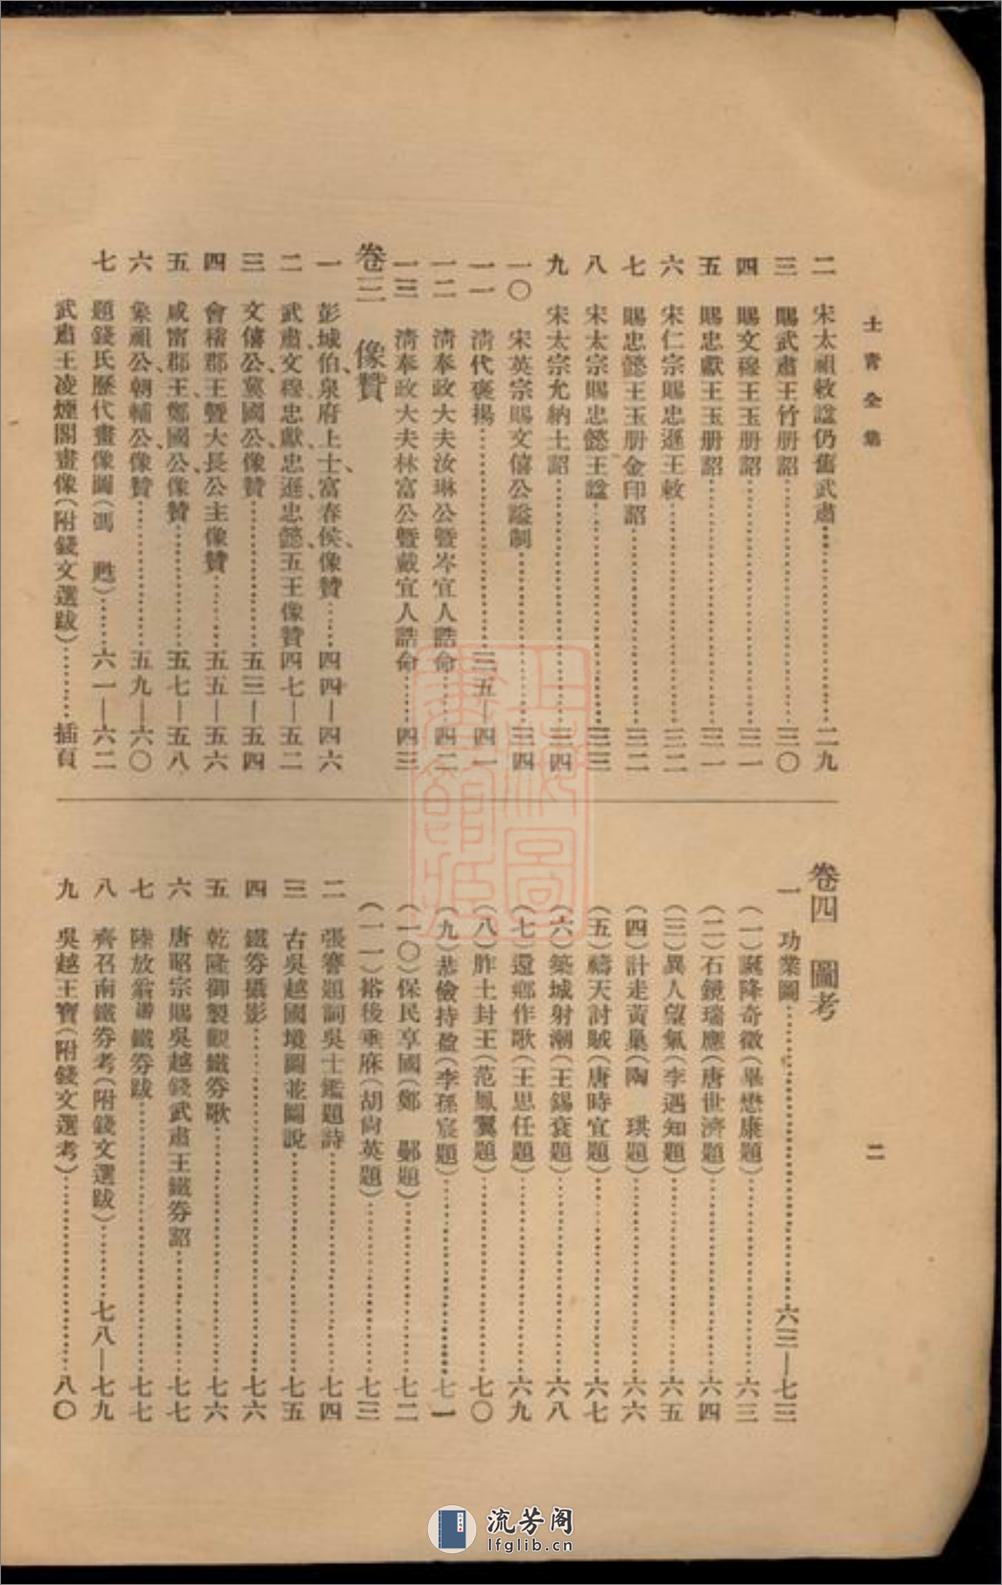 士青全集
二
二　宋太祖敕諡仍舊武肅……二九
三　賜武肅王竹册詔……三〇
四　賜文穆王玉册詔……三一
五　賜忠獻王玉册詔……三一
六　宋仁宗賜忠遜王敕……三二
七　賜忠懿王玉册金印詔……三二
八　宋太宗賜忠懿王諡……三三
九　宋太宗允納土詔……三四
一〇　宋英宗賜文僖公諡制……三四
一一　清代褒揚……三五—四一
一二　清奉政大夫汝琳公暨岑宜人誥命……四二
一三　清奉政大夫林富公暨戴宜人誥命……四三
卷三　像贊
一　彭城伯、泉府上士、富春侯、像贊……四四—四六
二　武肅、文穆、忠獻、忠遜、忠懿、五王像贊四七—五二
三　文僖公、冀國公、像贊……五三—五四
四　會稽郡王暨大長公主像贊……五五—五六
五　咸甯郡王、鄭國公、像贊……五七—五八
六　象祖公、朝輔公、像贊……五九—六〇
七　題錢氏歷代畫像圖（馮　甦）……六一—六二
武肅王凌煙閣畫像（附錢文選跋）……插頁
卷四　圖考
一　功業圖……六三—七三
（一）誕降奇徵（畢懋康題）……六三
（二）石鏡瑞應（唐世濟題）……六四
（三）異人望氣（李遇知題）……六五
（四）計走黃巢（陶　珙題）……六六
（五）禱天討賊（唐時宜題）……六七
（六）築城射潮（王錫袞題）……六八
（七）還鄉作歌（王思任題）……六九
（八）胙土封王（范鳳翼題）……七〇
（九）恭儉持盈（李孫宸題）……七一
（一〇）保民享國（鄭　鄤題）……七二
（一一）裕後垂庥（胡尙英題）……七三
二　張謇題詞吳士鑑題詩……七四
三　古吳越國境圖並圖說……七五
四　鐵劵攝影……七六
五　乾隆御製觀鐵劵歌……七六
六　唐昭宗賜吳越錢武肅王鐵劵詔……七七
七　陸放翁游鐵劵跋……七七
八　齊召南鐵劵考（附錢文選跋）……七八—七九
九　吳越王寶（附錢文選考）……八〇
上海圖書館藏
流芳阁
lfglib.cn